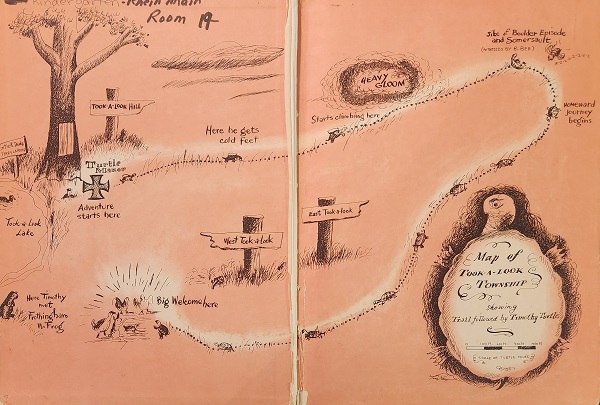 Kindergarten - Rhein Main
Room 19
TOOK-A-LOOK HILL
HEAVY
GLOOM
Site of Boulder Episode
and Somersault
Starts climbing here
Homeward
journey
begins
Here he gets
cold feet
TURTLE
Manor
Adventure
starts here
Took-a-look
Lake
East Took-a-look
West Took-a-look
Here Timothy
met
Fathingham
N. Frog
Big Welcome here
Map of
TOOK-A-LOOK
TOWNSHIP
Showing
Trail followed by Timothy Turtle